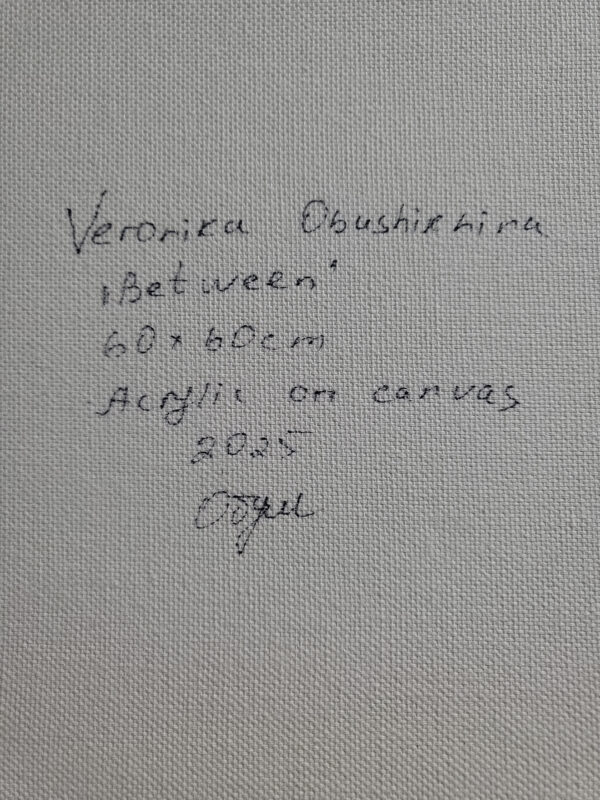 Veronika Obushikhina
"Between"
60 x 60cm
Acrylic on canvas
2025